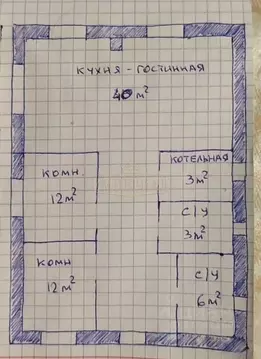 КУХНЯ-ГОСТИННАЯ
40 м²
КОМН.
12 м²
КОТЕЛЬНАЯ
3 м²
С/У
3 м²
КОМН
12 м²
С/У
6 м²